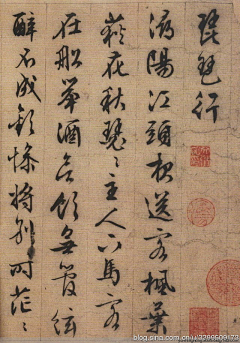 琵琶行
潯陽江頭夜送客楓葉
荻花秋瑟〻主人下馬客
在船舉酒欲飲無管絃
醉不成歡慘將別時茫〻
blog.sina.com.cn/u/2299509172